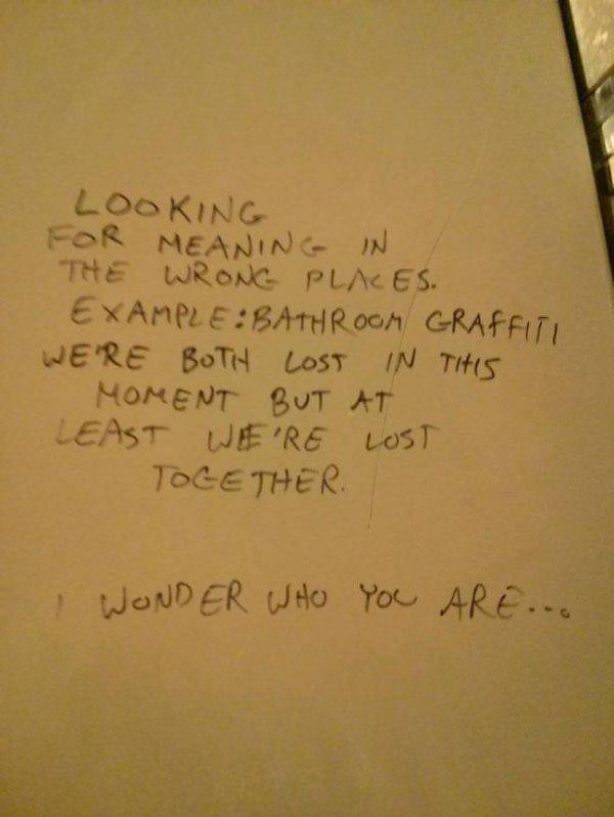 LOOKING
FOR MEANING IN
THE WRONG PLACES.
EXAMPLE: BATHROOM GRAFFITI
WE'RE BOTH LOST IN THIS
MOMENT BUT AT
LEAST WE'RE LOST
TOGETHER.
I WONDER WHO YOU ARE...